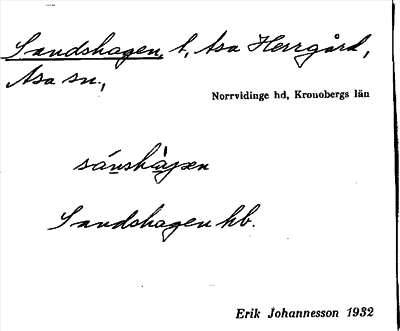 Sandshagen, t, Asa Herrgård,
Asa sn.,
Norrvidinge hd, Kronobergs län
sánshàgen
Sandshagen hb.
Erik Johannesson 1932